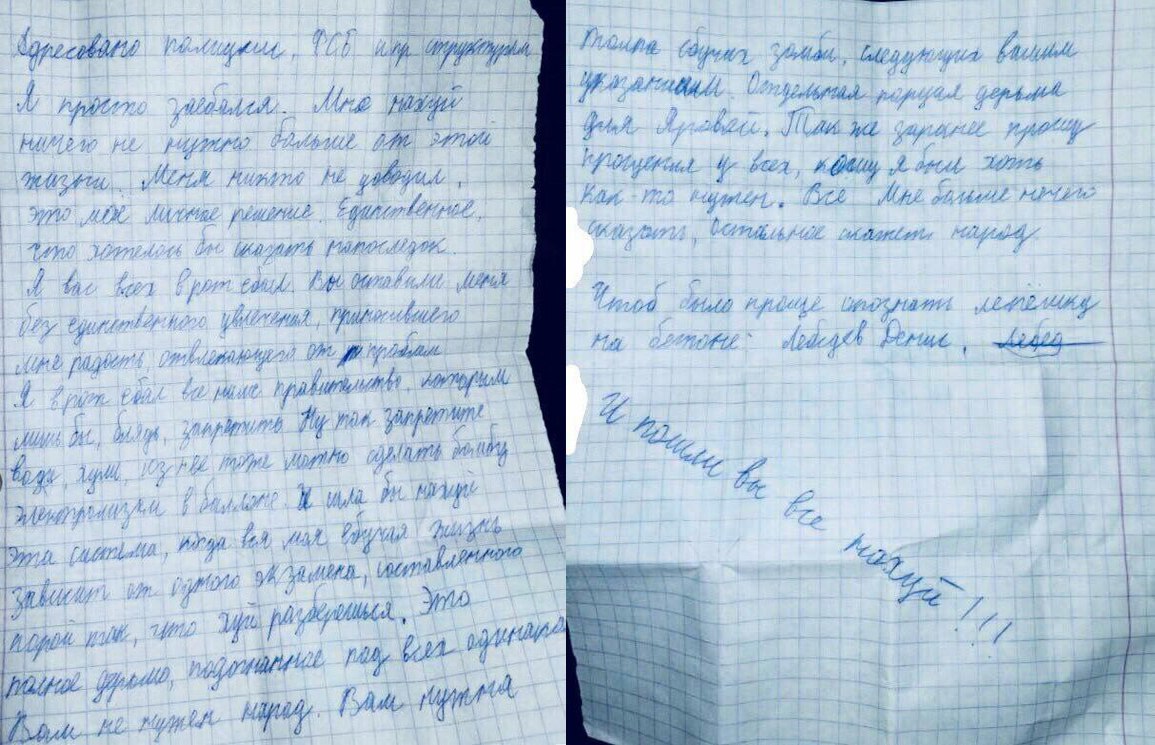 Адресовано полиции, ФСБ и пр структурам
Я просто заебался. Мне нахуй
ничего не нужно больше от этой
жизни. Меня никто не доводил,
это моё личное решение. Единственное,
что хотелось бы сказать напоследок.
Я вас всех в рот ебал. Вы оставили меня
без единственного увлечения, приносившего
мне радость, отвлекающего от проблем
Я в рот ебал все наше правительство, которым
лишь бы, блядь, запретить. Ну так запретите
воду, хули, из нее тоже можно сделать бомбу
электролизом в баллоне. И шла бы нахуй
эта система, когда вся моя ебучая жизнь
зависит от одного экзамена, составленного
порой так, что хуй разберешься. Это
полное дерьмо, подогнанное под всех одинаково
Вам не нужен народ. Вам нужна
толпа ебучих зомби, следующих вашим
указаниям. Отдельная порция дерьма
для Яровой. Так же заранее прошу
прощения у всех, кому я был хоть
как то нужен. Все Мне больше нечего
сказать, остальное скажет народ
Чтоб было проще опознать лепёшку
на бетоне: Лебедев Денис,
И пошли вы все нахуй!!!